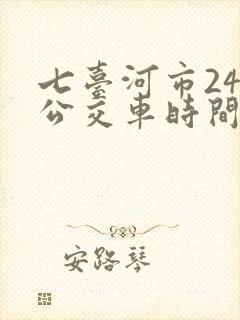 七臺河市24
公交車時間
安路琴